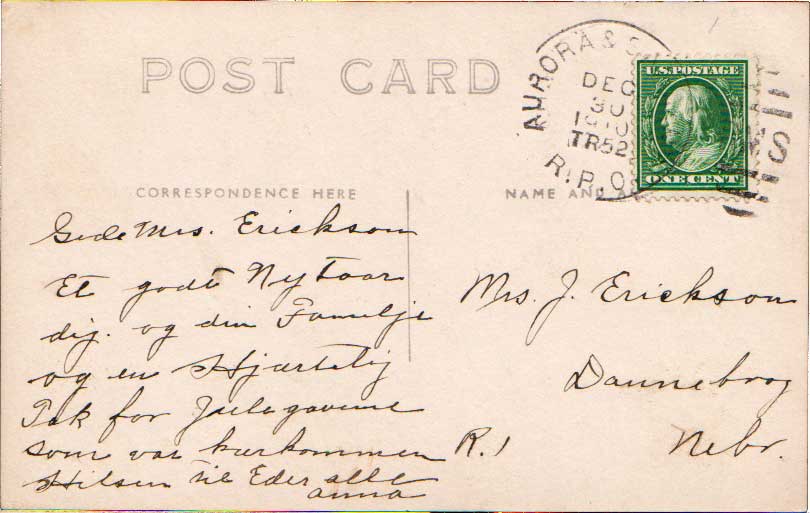 POST CARD
AURORA & S
DEC
30
1910
TR52
R.P.O
U.S. POSTAGE
ONE CENT
CORRESPONDENCE HERE
NAME AND A
Gode Mrs. Erickson
Et godt Nytaar
dig. og din Familje
og en Hjærtelig
Tak for Julegaverne
som var kærkommen
Hilsen til Eder alle
anna
Mrs. J. Erickson
Dannebrog
R.1 Nebr.